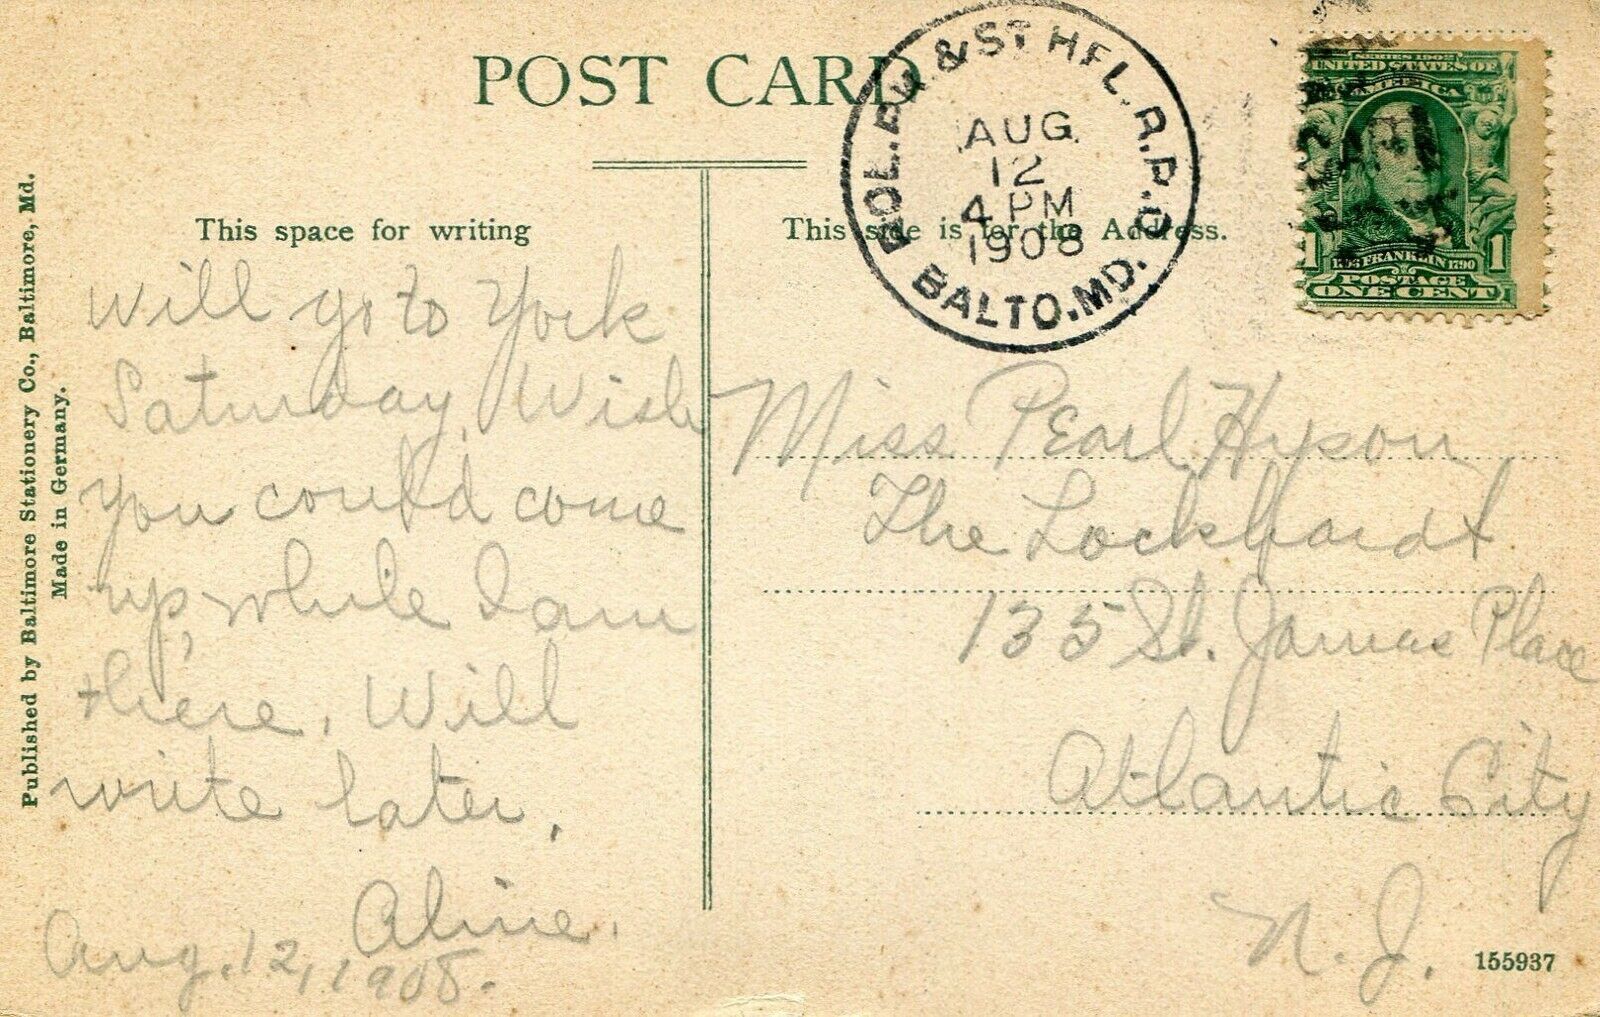 POST CARD
This space for writing
This side is for the Address.
Published by Baltimore Stationery Co., Baltimore, Md.
Made in Germany.
ROL. PK. & ST HEL. R.P.O.
AUG
12
4 PM
1908
BALTO. MD.
SERIES 1902
UNITED STATES OF
AMERICA
1706 FRANKLIN 1790
1 POSTAGE 1
ONE CENT
Will go to York
Saturday. Wish
you could come
up, while I am
there. Will
write later.
Aline.
Aug. 12, 1908.
Miss Pearl Hyson
The Lockhardt
135 St. James Place
Atlantic City
N. J.
155937